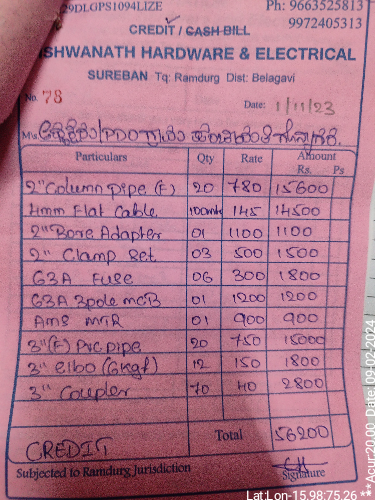 29DLGPS1094LIZE
Ph: 9663525813
9972405313
CREDIT / CASH BILL
SHWANATH HARDWARE & ELECTRICAL
SUREBAN Tq: Ramdurg Dist: Belagavi
No. 78
Date: 1/11/23
M/s
Particulars Qty Rate Amount
Rs. Ps
2" Column pipe (F) 20 780 15600
4mm Flat Cable 100mts 145 14500
2" Bore Adapter 01 1100 1100
2" Clamp Set 03 500 1500
63A Fuse 06 300 1800
63A 3pole MCB 01 1200 1200
01 900 900
3" (F) Pvc pipe 20 750 15000
3" elbo (6kgf) 12 150 1800
3" Coupler 70 40 2800
CREDIT
Total 56200
Subjected to Ramdurg Jurisdiction
Signature
Lat:Lon-15.98:75.26 **Acur:20.00 Date: 09-02-2024